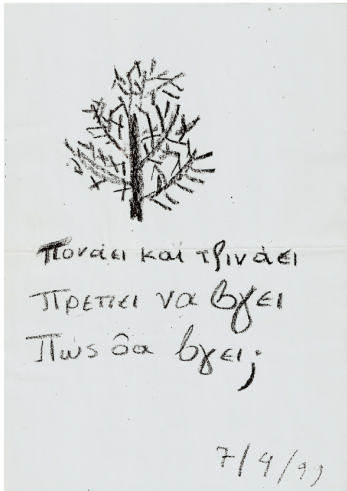 Πονάει και τρινάει
Πρεπει να βγει
Πως θα βγει;
7/4/99